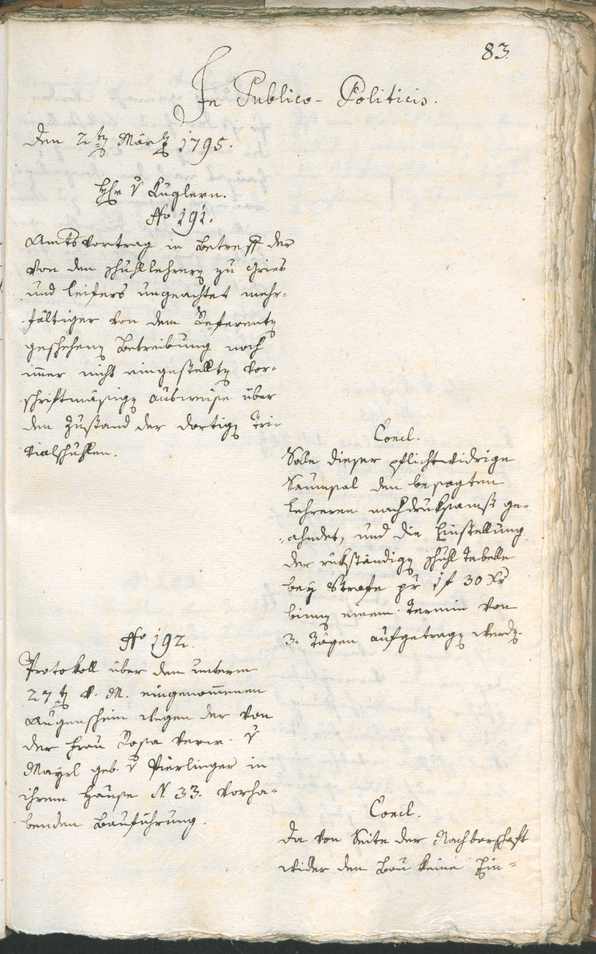 83
In Publico-Politicis.
Den 2ten März 1795.
Hr. v Kuglern.
No 191.
Amtsvortrag in Betreff der
von den Schullehrern zu Gries
und Leifers ungeachtet mehr-
fältiger von dem Referenten
geschehenen Betreibung noch
immer nicht eingestellten vor-
schriftmäßigen Ausweise über
den Zustand der dortigen Tri-
vialschulen.
Concl.
Solle dieser pflichtwidrige
Saumsal den besagten
Lehreren nachdruksamst ge-
ahndet, und die Einstellung
der rükständigen Schul Tabelle
bey Strafe pr 1 f 30 Xr
binnen einem Termin von
3. Tägen aufgetragen werden.
No 192.
Protokoll über den unterm
27ten v. M. eingenommenen
Augenschein wegen der von
der Frau Rosa Verw. v
Mayrl geb. v Pierlinger in
ihrem Hause N 33. vorha-
benden Bauführung.
Concl.
Da von Seite der Nachberschaft
wider den Bau keine Ein-